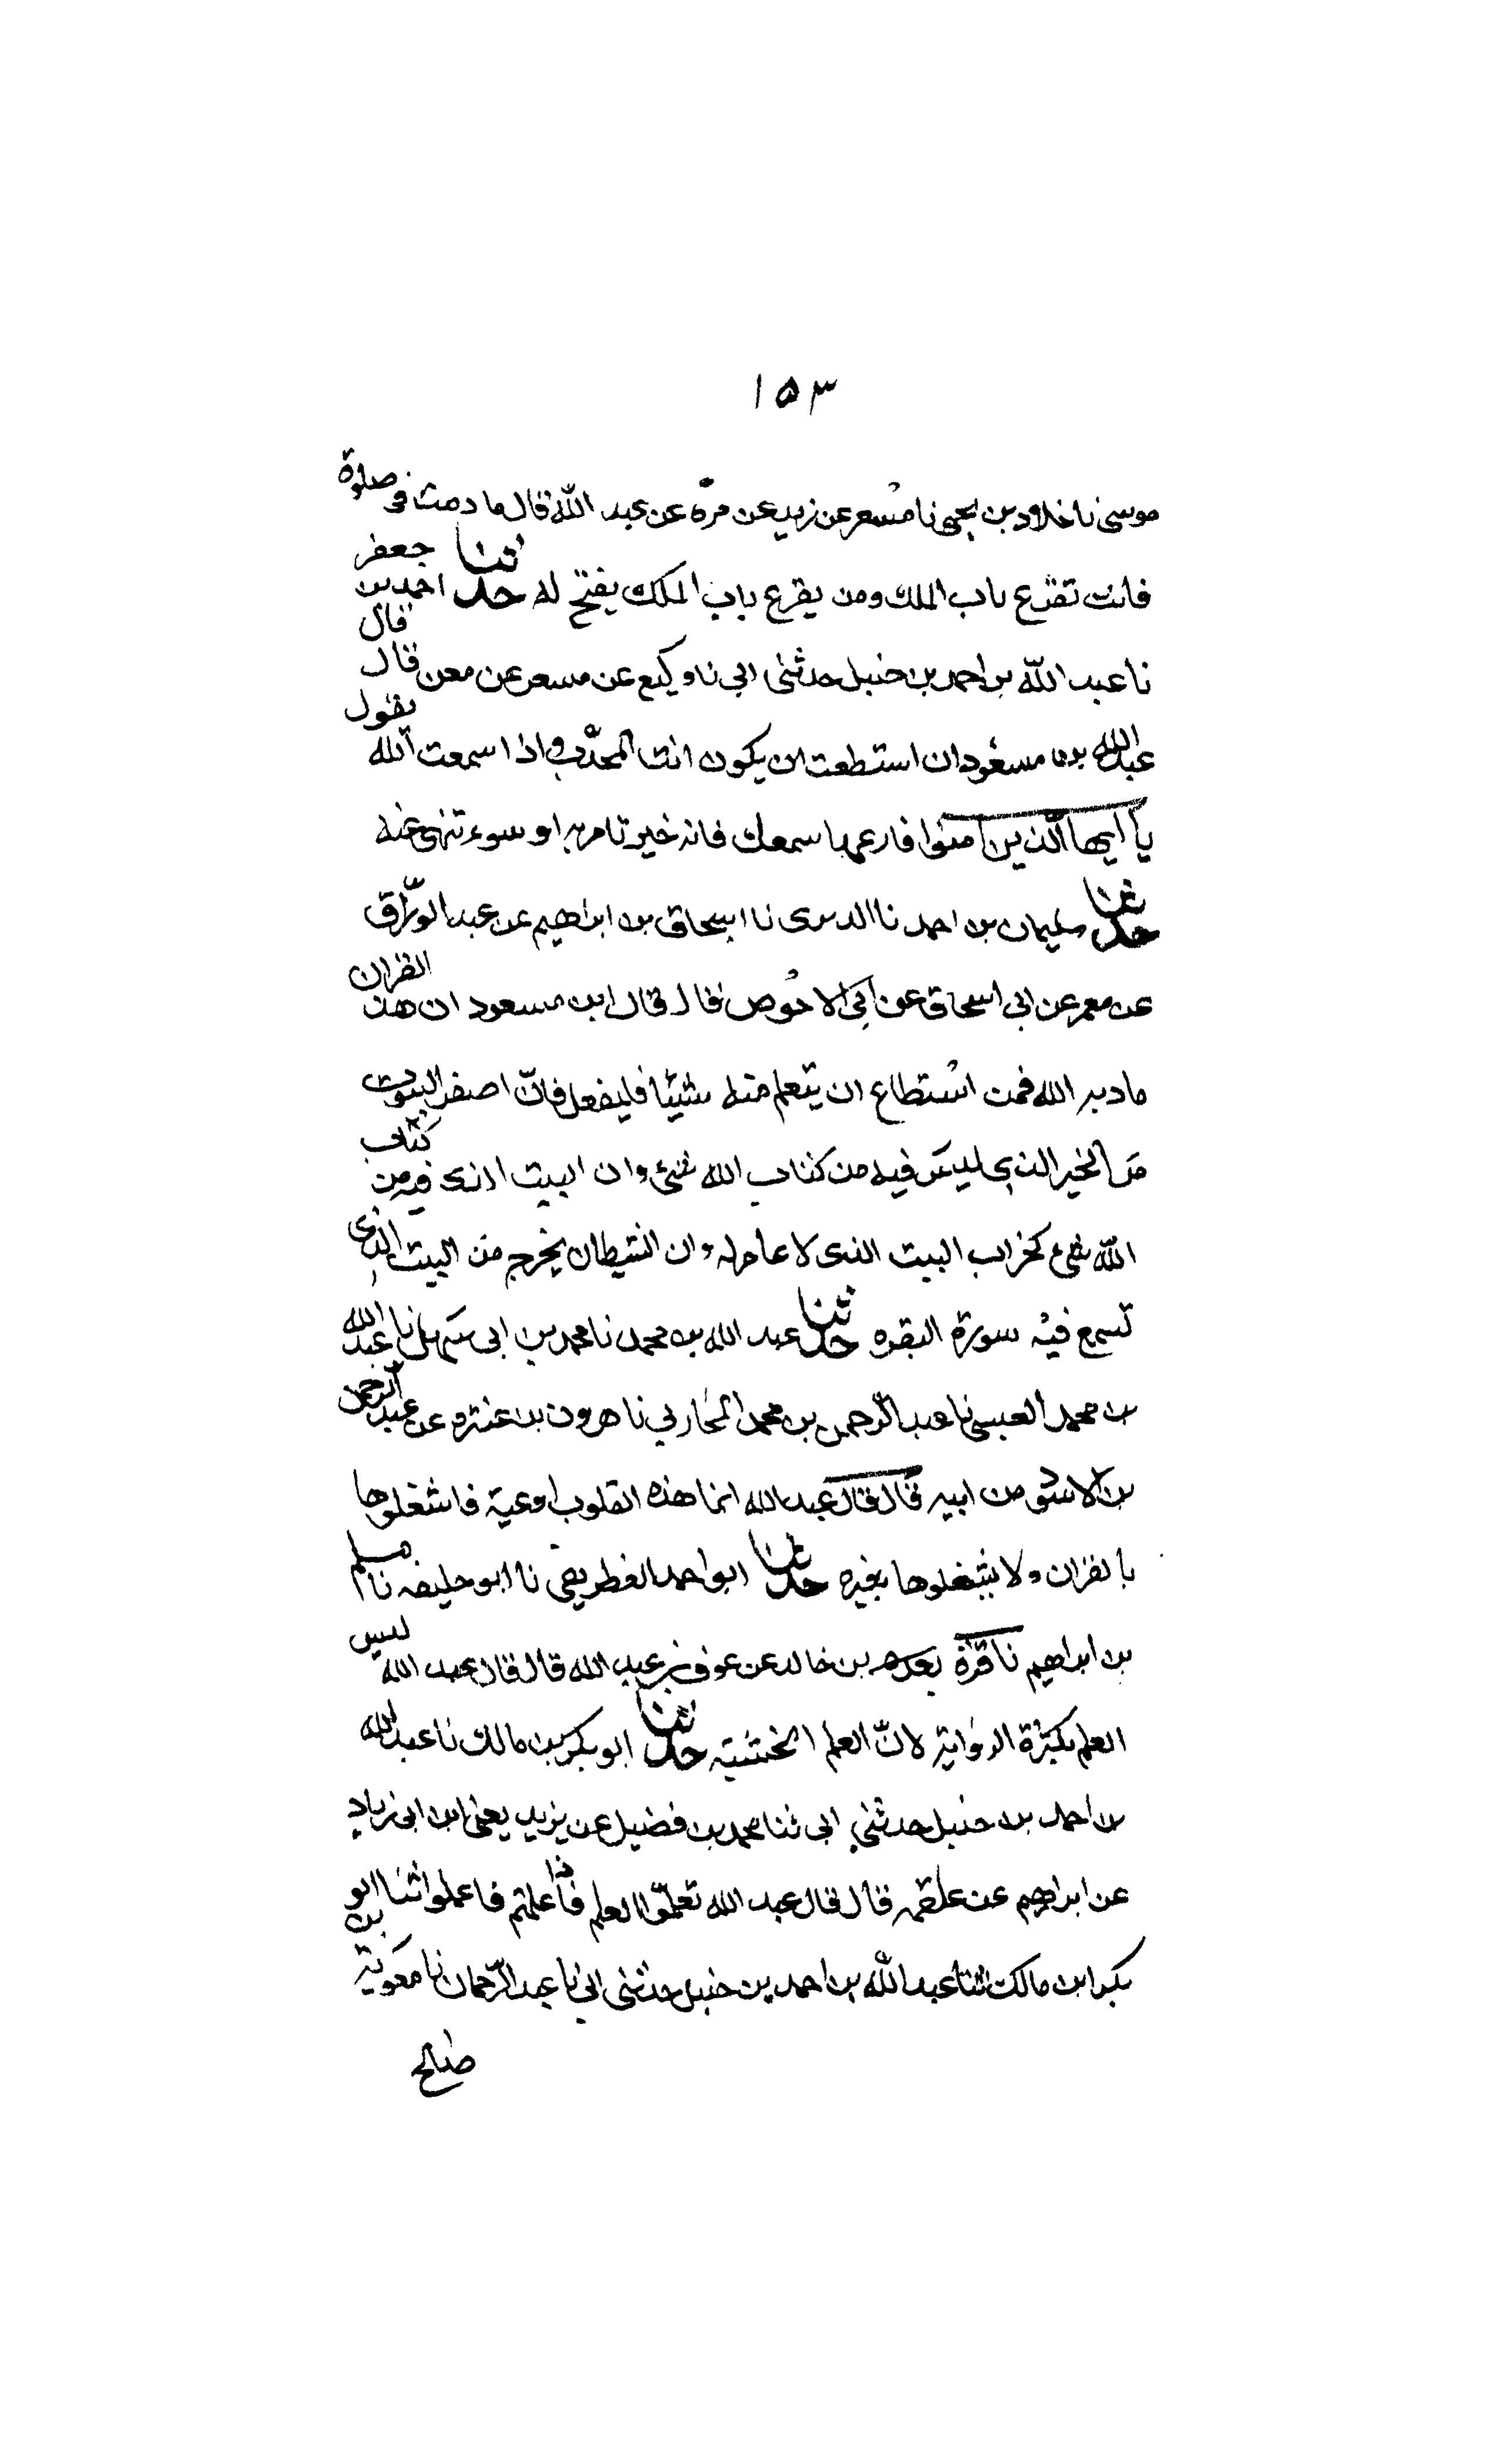 ١٥٣
موسى نا خلاد بن يحيى نا مسعر عن زبيد عن مرة عن عبد الله قال ما دمت فى صلوة
فانت تقرع باب الملك ومن يقرع باب الملك يفتح له حدثنا احمد بن جعفر
نا عبد الله بن احمد بن حنبل حدثنى ابى نا وكيع عن مسعر عن معن قال قال
عبد الله بن مسعود ان استطعت ان يكون انت المحدث واذا سمعت الله يقول
يا ايها الّذين امنوا فارعها سمعك فانه خير تامر به او سوء تنهى عنه
حدثنا سليمان بن احمد نا الدبرى نا اسحاق بن ابراهيم عن عبد الرزاق
عن معمر عن ابى اسحاق عن ابى الاحوص قال قال ابن مسعود ان هذا القران
مادبه الله فمن استطاع ان يتعلم منه شيئا فليفعل فانّ اصفر البيوت
من الخير الذى ليس فيه من كتاب الله شئ وان البيت الذى فيه من كتاب
الله شئ كخراب البيت الذى لا عامر له وان الشيطان يخرج من البيت الذى
تسمع فيه سورة البقره حدثنا عبد الله بن محمد نا محمد بن ابى سهل نا عبد الله
بن محمد العبسى نا عبد الرحمن بن محمد المحاربي نا هرون بن عنتره عن عبد الرحمن
بن الاسود من ابيه قال قال عبد الله انما هذه القلوب اوعية فاشغلوها
بالقران ولا تشغلوها بغيره حدثنا ابو احمد الغطريفى نا ابو خليفه نا مسلم
بن ابراهيم نا قرة بن خالد عن عون بن عبد الله قال قال عبد الله ليس
العلم بكثرة الرواية لانّ العلم الخشية حدثنا ابو بكر بن مالك نا عبد الله
بن احمد بن حنبل حدثنى ابى ثنا محمد بن فضيل عن يزيد يعنى ابن ابى زياد
عن ابراهيم عن علقمه قال قال عبد الله تعلّموا العلم فاذا علمتم فاعملوا ثنا ابو
بكر ابن مالك ثنا عبد الله بن احمد بن حنبل حدثنى ابى نا عبد الرحمان نا معوية بن
صالح